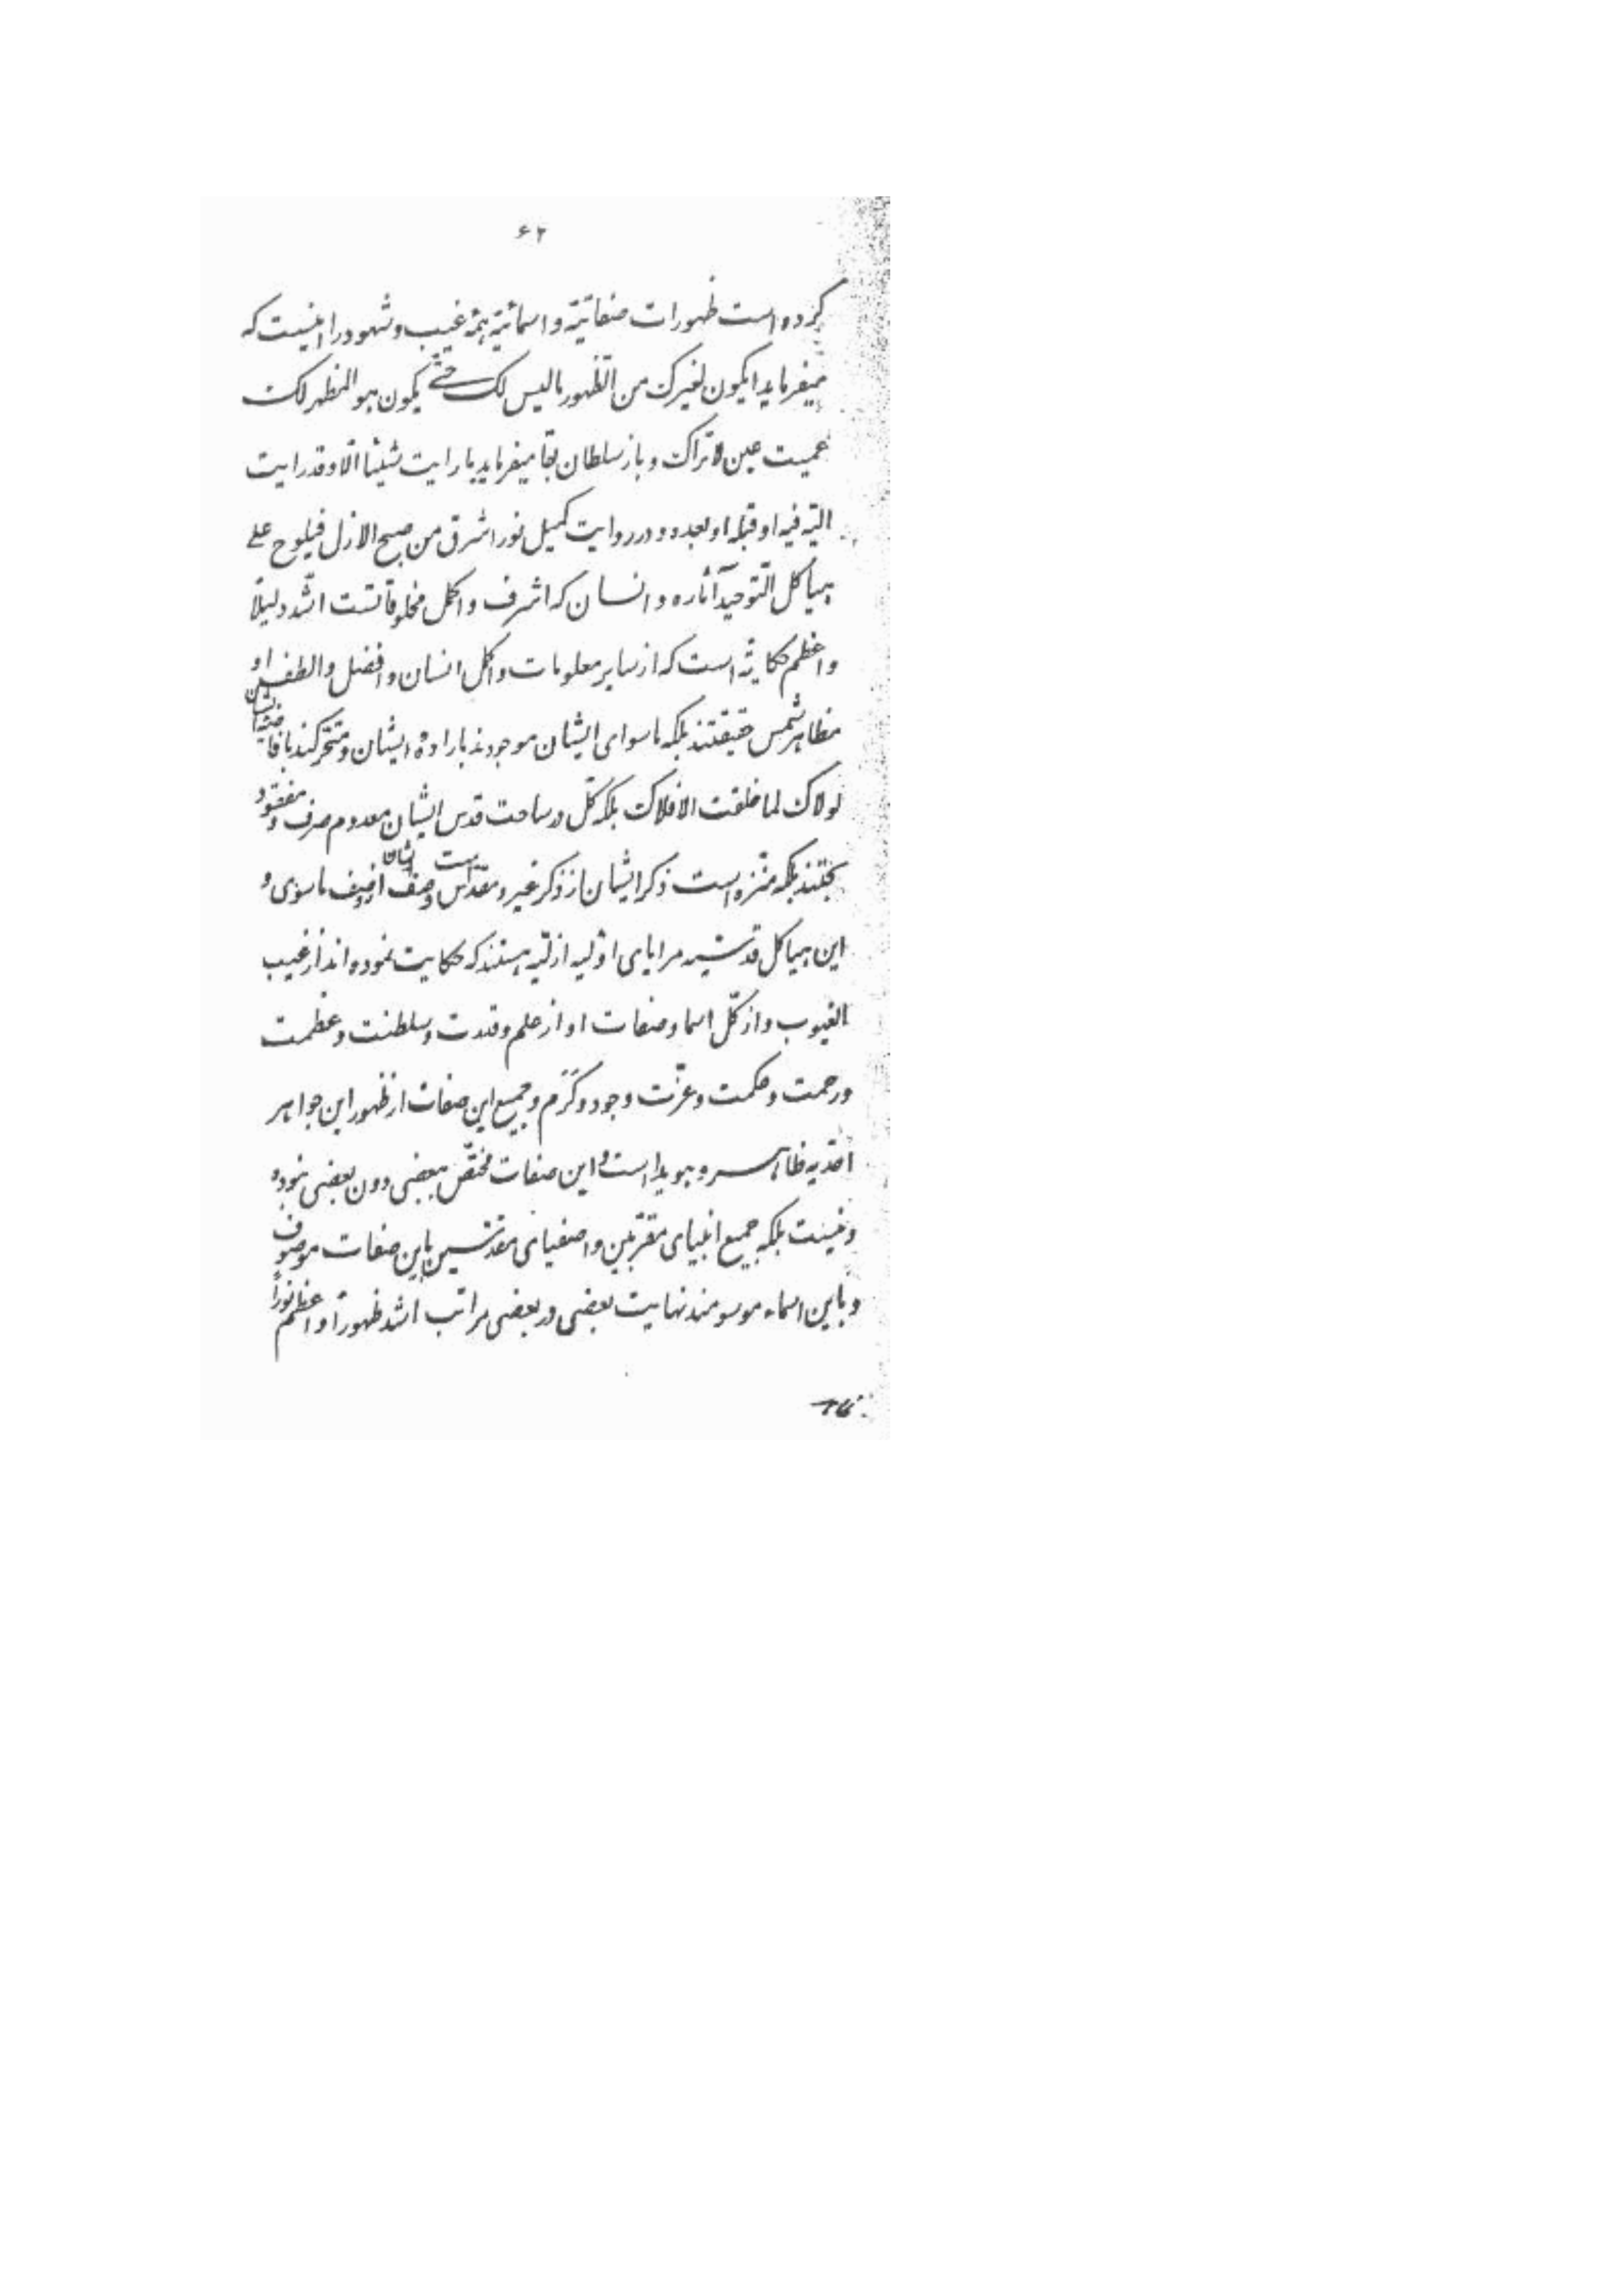 ۶۲
کرده است ظهورات صفاتیّه و اسمائیّه همه غیب و شهود را اینست که
میفرماید ایکون لغیرک من الظّهور ما لیس لک حتّی یکون هو المظهر لک
عمیت عین لا تراک و باز سلطان بقا میفرماید ما رایت شیئا الّا و قد رایت
اللّه فیه او قبله او بعده و در روایت کمیل نور اشرق من صبح الازل فیلوح علی
هیاکل التّوحید آثاره و انسان که اشرف و اکمل مخلوقاتست اشّد دلیلاً
و اعظم حکایةً است که از سایر معلومات و اکمل انسان و افضل و الطف او
مظاهر شمس حقیقتند بلکه ماسوای ایشان موجودند باراده ایشان و متحرّکند بافاضه ایشان
لولاک لما خلقت الافلاک بلکه کلّ در ساحت قدس ایشان معدوم صرف و مفقود
بحتند بلکه منزّه است ذکر ایشان از ذکر غیر و مقدّس است وصف ایشان از وصف ماسوی و
این هیاکل قدسیه مرایای اوّلیه ازلیّه هستند که حکایت نموده‌اند از غیب
الغیوب و از کلّ اسما و صفات او از علم و قدرت و سلطنت و عظمت
و رحمت و حکمت و عزّت و جود و کَرَم و جمیع این صفات از ظهور این جواهر
احدّیه ظاهر و هویدا است و این صفات مختصّ ببعضی دون بعضی نبوده
و نیست بلکه جمیع انبیای مقرّبین و اصفیای مقدّسین باین صفات موصوف
و باین اسماء موسومند نهایت بعضی در بعضی مراتب اشدّ ظهوراً و اعظم نوراً